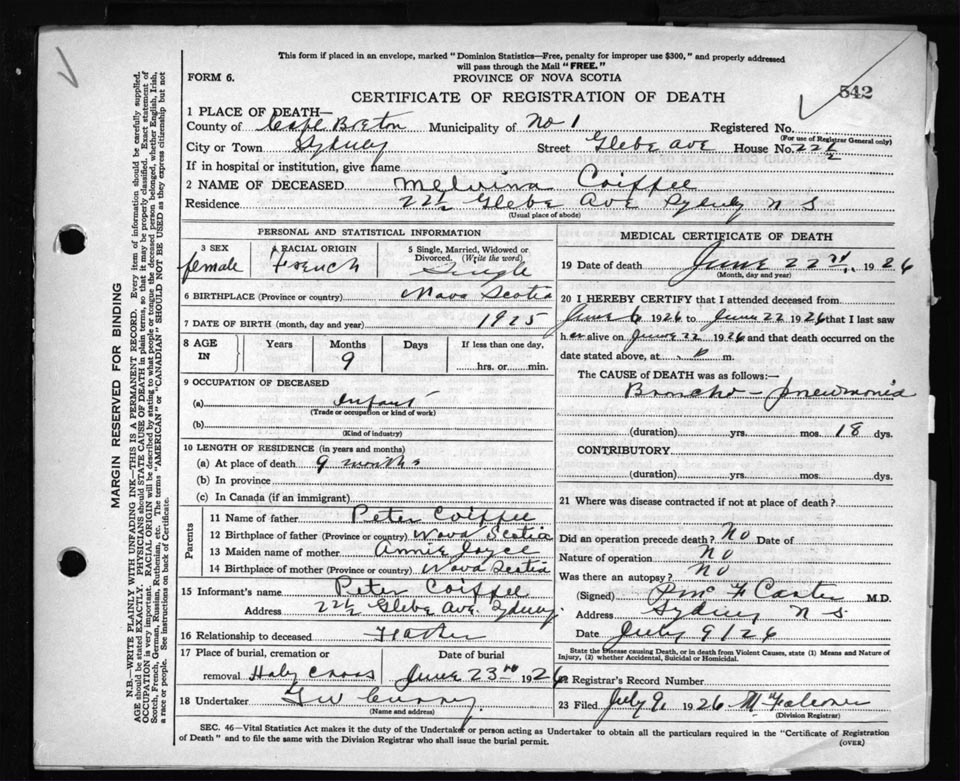 This form if placed in an envelope, marked "Dominion Statistics—Free, penalty for improper use $300," and properly addressed
will pass through the Mail "FREE."
FORM 6.
PROVINCE OF NOVA SCOTIA
542
CERTIFICATE OF REGISTRATION OF DEATH
1 PLACE OF DEATH—
County of Cape Breton Municipality of No 1 Registered No.
(For use of Registrar General only)
City or Town Sydney Street Glebe Ave House No. 22½
If in hospital or institution, give name
2 NAME OF DECEASED Melvina Coiffee
Residence 22½ Glebe Ave Sydney N S
(Usual place of abode)
PERSONAL AND STATISTICAL INFORMATION
3 SEX 4 RACIAL ORIGIN 5 Single, Married, Widowed or Divorced. (Write the word)
female French Single
6 BIRTHPLACE (Province or country) Nova Scotia
7 DATE OF BIRTH (month, day and year) 1925
8 AGE IN Years Months Days If less than one day,
9 hrs. or min.
9 OCCUPATION OF DECEASED
(a) Infant
(Trade or occupation or kind of work)
(b)
(Kind of industry)
10 LENGTH OF RESIDENCE (in years and months)
(a) At place of death 9 months
(b) In province
(c) In Canada (if an immigrant)
Parents
11 Name of father Peter Coiffee
12 Birthplace of father (Province or country) Nova Scotia
13 Maiden name of mother Annie Joyce
14 Birthplace of mother (Province or country) Nova Scotia
15 Informant's name Peter Coiffee
Address 22½ Glebe Ave. Sydney.
16 Relationship to deceased Father
17 Place of burial, cremation or Date of burial
removal Holy Cross June 23rd 1926
18 Undertaker
(Name and address)
MEDICAL CERTIFICATE OF DEATH
19 Date of death June 22nd, 1926
(Month, day and year)
20 I HEREBY CERTIFY that I attended deceased from
June 6 1926 to June 22 1926 that I last saw
her alive on June 22 1926 and that death occurred on the
date stated above, at p m.
The CAUSE of DEATH was as follows:—
Broncho-pneumonia
(duration) yrs. mos. 18 dys.
CONTRIBUTORY
(duration) yrs. mos. dys.
21 Where was disease contracted if not at place of death?
Did an operation precede death? No Date of
Nature of operation No
Was there an autopsy? No
(Signed) M.D.
Address Sydney N S
Date July 9/26
State the Disease causing Death, or in death from Violent Causes, state (1) Means and Nature of
Injury, (2) whether Accidental, Suicidal or Homicidal.
22 Registrar's Record Number
23 Filed July 9, 1926
(Division Registrar)
SEC. 46—Vital Statistics Act makes it the duty of the Undertaker or person acting as Undertaker to obtain all the particulars required in the "Certificate of Registration
of Death" and to file the same with the Division Registrar who shall issue the burial permit.
(OVER)
MARGIN RESERVED FOR BINDING
N.B.—WRITE PLAINLY WITH UNFADING INK—THIS IS A PERMANENT RECORD. Every item of information should be carefully supplied.
AGE should be stated EXACTLY. PHYSICIANS should STATE CAUSE OF DEATH in plain terms, so that it may be properly classified. Exact statement of
OCCUPATION is very important. RACIAL ORIGIN will be described by stating to what people or tongue the deceased person belonged, whether English, Irish,
Scotch, French, German, Russian, Ruthenian, etc. The terms "AMERICAN" or "CANADIAN" SHOULD NOT BE USED as they express citizenship but not
a race or people. See instructions on back of Certificate.